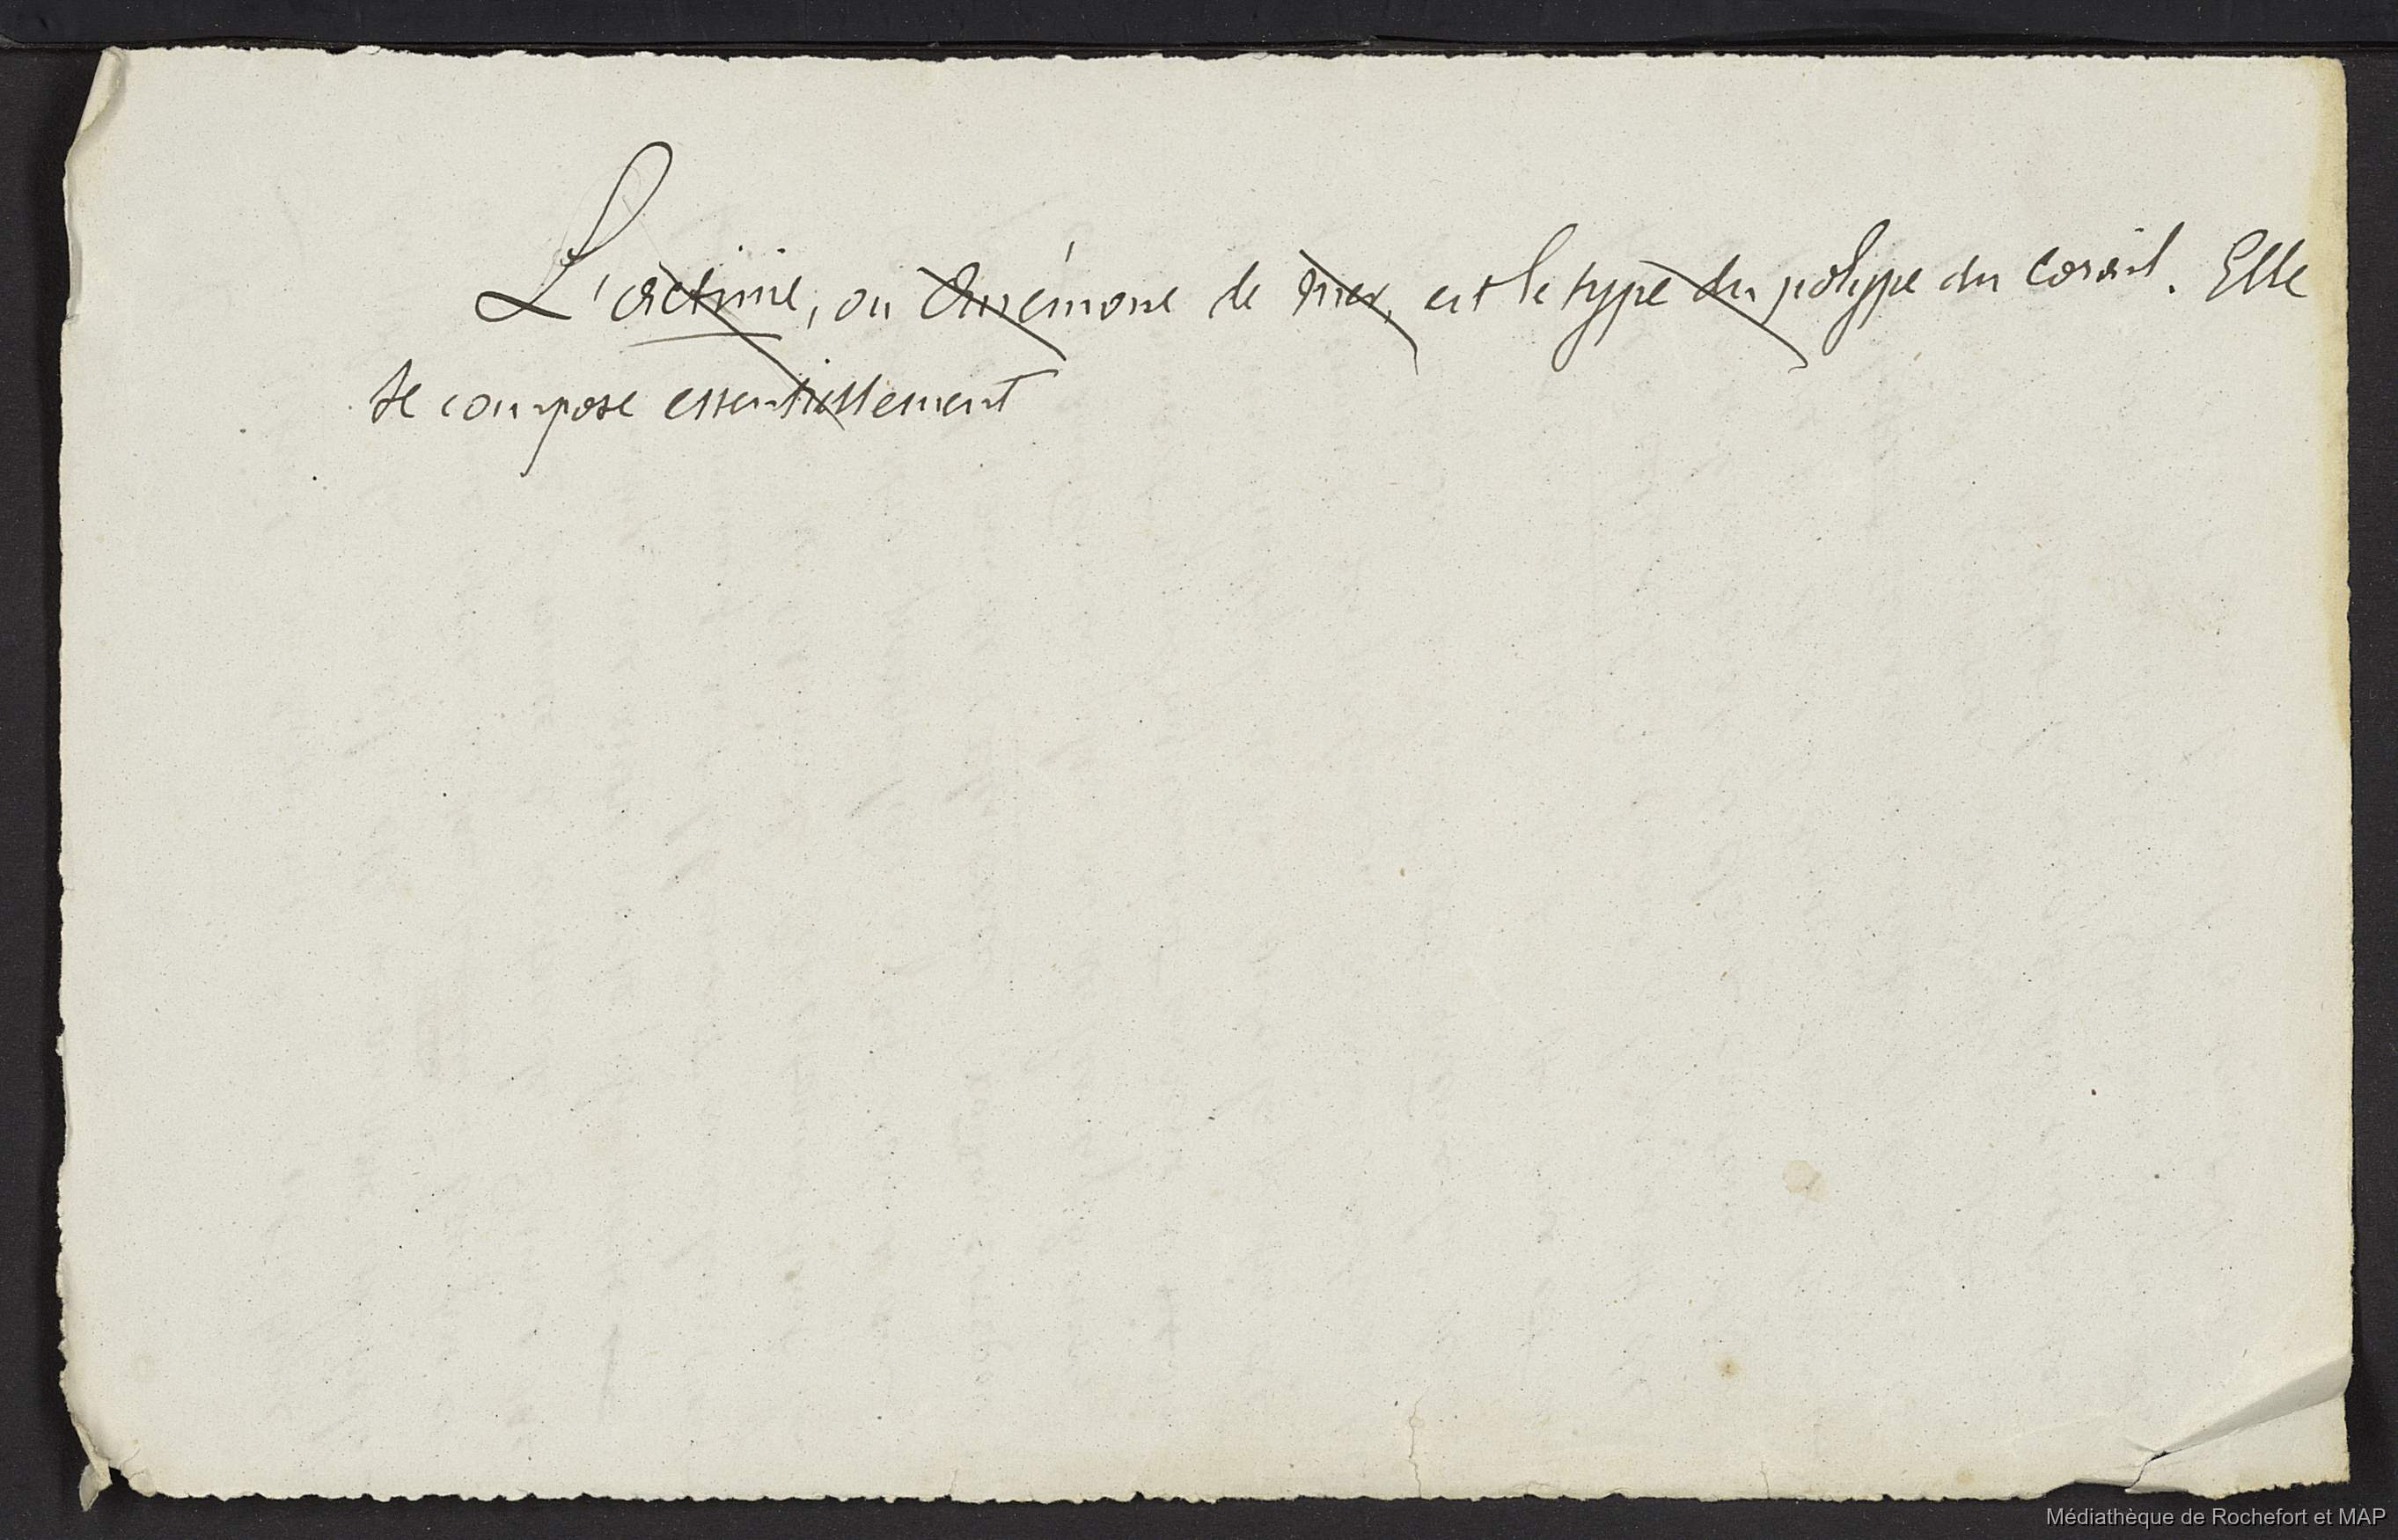 L'actinie, ou Anémone de mer, est le type du polype du corail. Elle
se compose essentiellement
Médiathèque de Rochefort et MAP